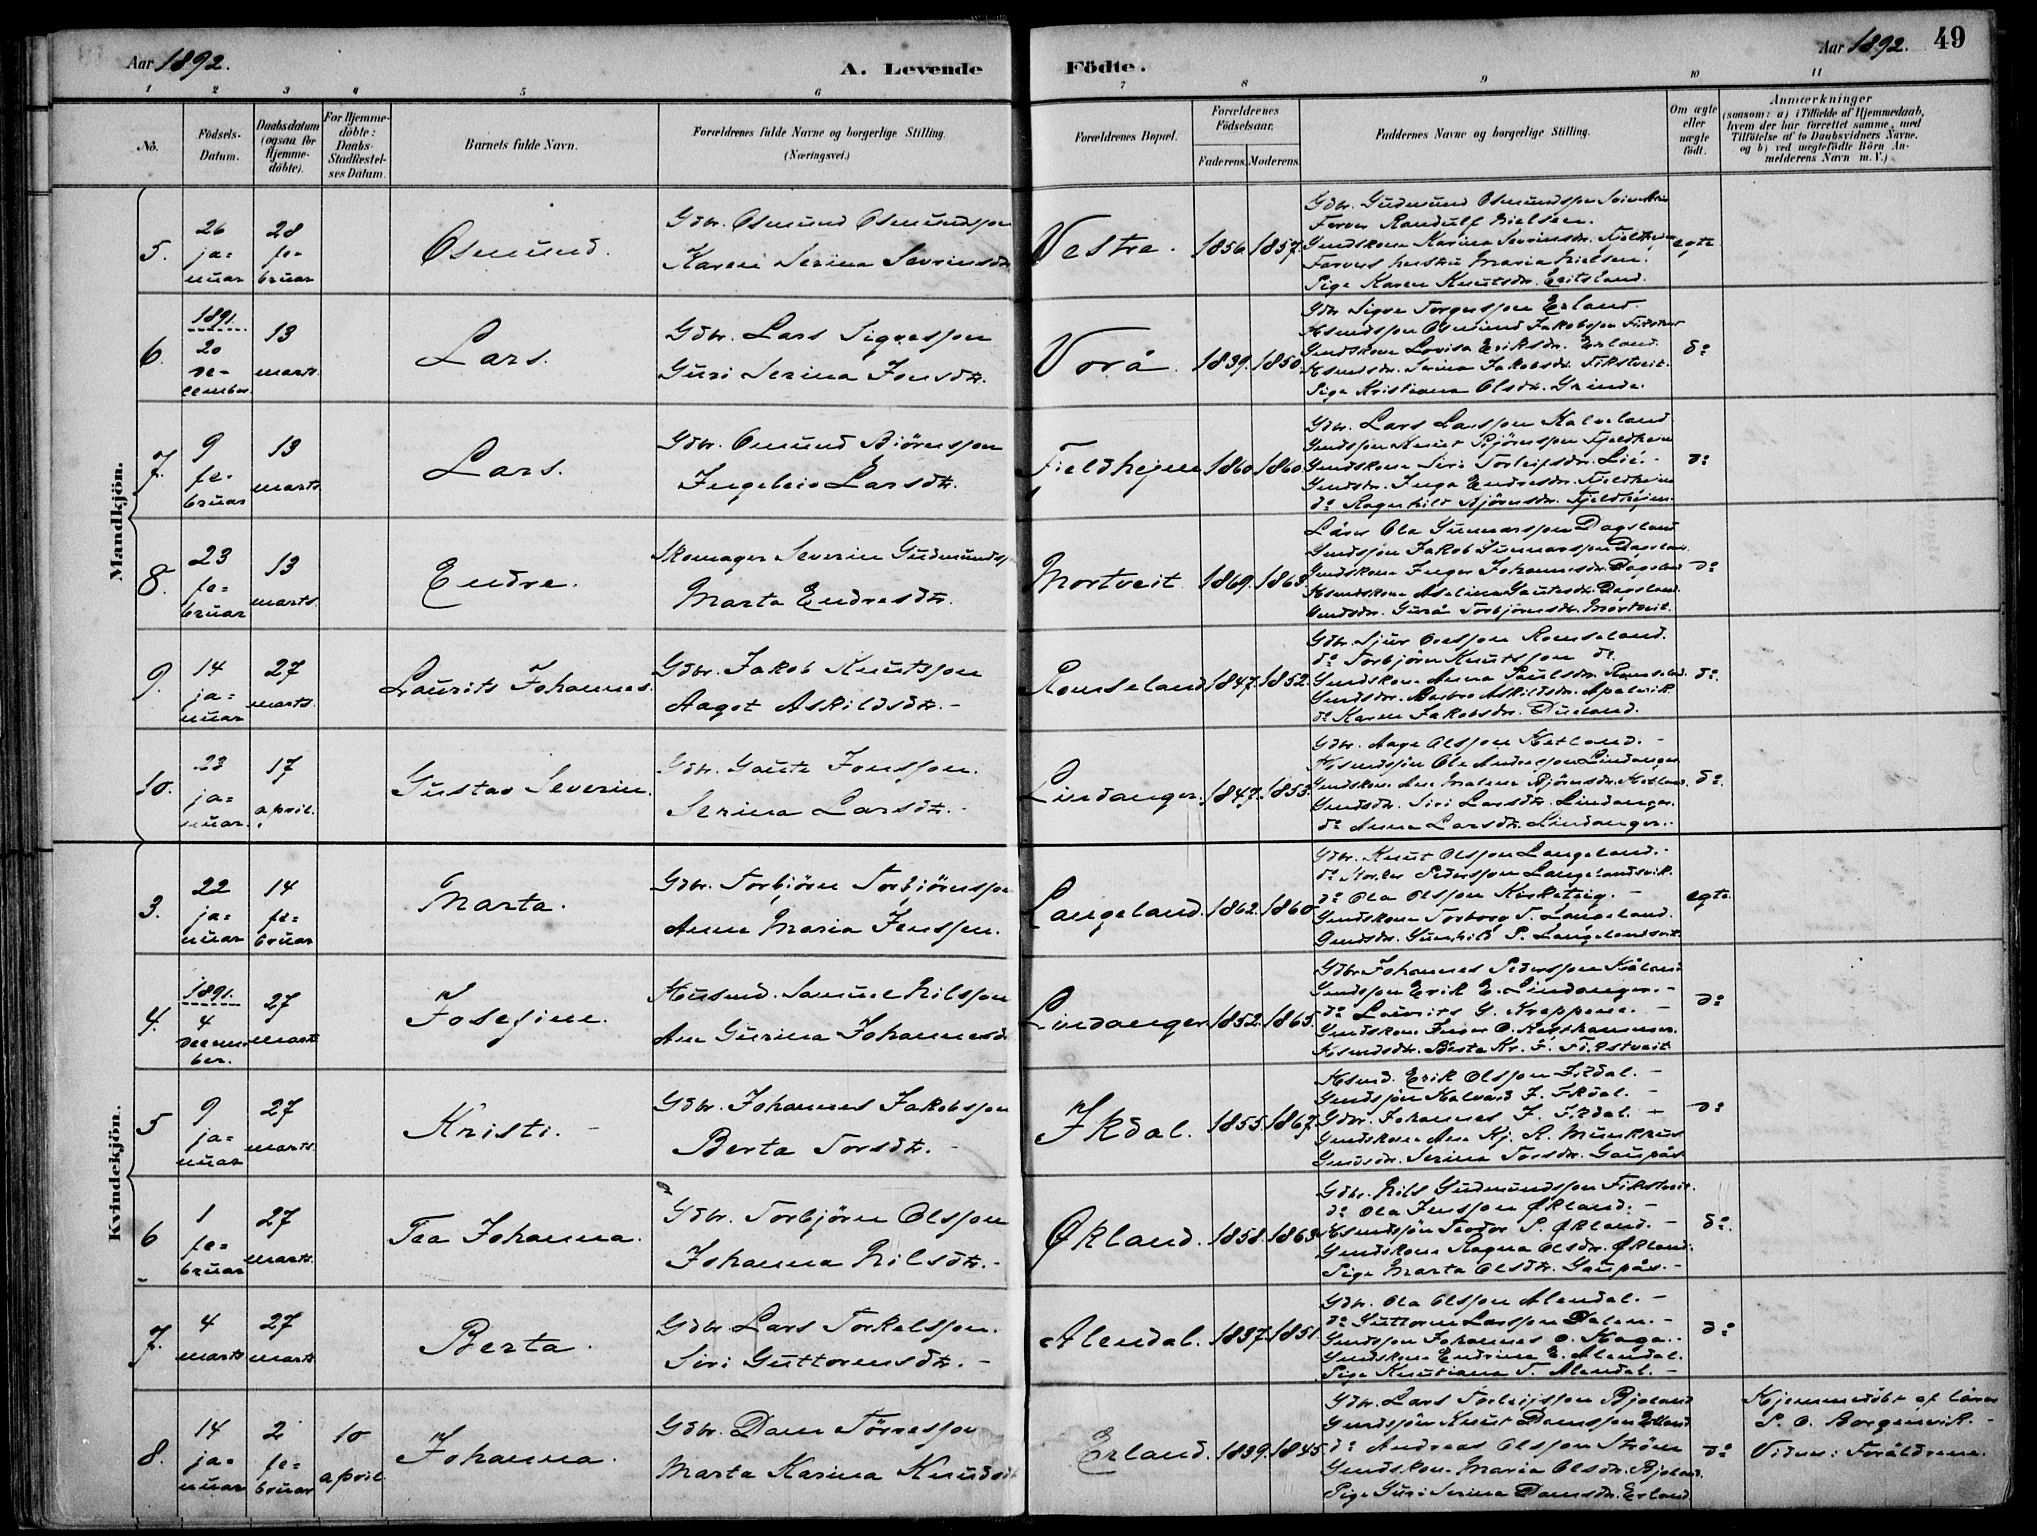 Aar 1892. A. Levende Födte. Aar 1892. 49
1 2 3 4 5 6 7 8 9 10 11
No.
Födsels-Datum.
Daabsdatum (ogsaa for Hjemme-döbte).
For Hjemme-döbte: Daabs-Stadfæstel-ses Datum.
Barnets fulde Navn.
Forældrenes fulde Navne og borgerlige Stilling. (Næringsvei.)
Forældrenes Bopæl.
Forældrenes Födselsaar.
Faderens. Moderens.
Faddernes Navne og borgerlige Stilling.
Om ægte eller uægte födt.
Anmærkninger
(saasom: a) i Tilfælde af Hjemmedaab, hvem der har forrettet samme, med Tilföielse af to Daabsvidners Navne. og b) ved uægtefödte Börn An-melderens Navn m. V.)
Mandkjön.
5. 26 ja=nuar 28 fe=bruar Osmund.
Gdbr. Osmund Osmundsson
Karen Serina Sevrinsdtr.
Vestre. 1856 1857.
Gdbr. Gudmund Osmundsson
Farver Randulf Nielsen.
Gmdskone Karina Sevrinsdtr.
Farvers hustru Maria Nielsen.
Pige Karen Knutsdtr.
egte
6. 1891. 20 de=cember 13 marts. Lars.
Gdbr. Lars Sigvesson
Guri Serina Jonsdtr.
Vorå. 1839. 1850.
Gdbr Sigve Torgersson Erland
Hsmdsson Osmund Jakobsson
Gmdskone Lovisa Eriksdtr. Erland.
Hsmdsdtr. Serina Jakobsdtr. Fikstveit.
Pige Kristiana Olsdtr. Grinde.
do
7. 9 fe=bruar 13 marts Lars.
Gdbr. Osmund Björnsson
Ingeleiv Larsdtr.
Fjeldhejm 1860 1860.
Gdbr. Lars Larsson Kalveland
Gmdssön Knut Björnsson Fjeldheim
Gmdskone Siri Torleifsdtr. Lie.
Gmdsdtr. Inga Endresdtr. Fjeldheim
do Ragnhild Björnsdtr. Fjeldhejm.
do
8. 23 fe=bruar 13 marts. Endre.
Skomager Severin Gudmunds
Marta Endresdtr.
Mortveit 1869. 1863.
Lärer Ola Gunnarsson Dagsland
Gmdssön Jakob Gunnarsson
Gmdskone Inger Johannesdtr. Dagsland
Hsmdskone Aselina Gautesdtr. Dagsland
Gmdsdtr. Guro Torbjörnsdtr. Mortveit.
do
9. 14 ja=nuar 27 marts. Laurits Johannes.
Gdbr. Jakob Knutsson
Aagot Askildsdtr. -
Romseland 1847. 1852.
Gdbr. Sjur Romseland.
do Torbjörn Knutsson do
Gmdskone Anna Paulsdtr. Romseland.
Gmdsdtr. Barbro Askildsdtr. Apalvik
do Karen Jakobsdtr. Dueland.
do
10. 23 ja=nuar. 17 april. Gustav Severin.
Gdbr. Gaute Jonsson.
Serina Larsdtr. -
Lindanger. 1847. 1853.
Gdbr. Aage Olsson Hetland. -
Hsmdssön Ole Andersson Lindanger
Gmdskone Ane Malene Björnsdtr. Hetland.
Gmdsdtr. Siri Larsdtr. Lindanger.
do Anna Larsdtr. Lindanger.
do.
Kvindekjön.
3. 22 ja=nuar 14 fe=bruar Marta.
Gdbr. Torbjörn Torbjörnsson
Anne Maria Jensson.
Langeland. 1862. 1860.
Gdbr. Knut Olsson Langeland. -
do Pedersson Langelandsvik.
do Ola Olsson Kirketeig. -
Gmdskone Torborg T. Langeland.
Gmdsdtr. Gunhild P. Langelandsvik
egte.
4. 1891. 4 decem=ber. 27 marts Josefine.
Husmd. Samuel Nilsson
Ane Gurina Johannesdtr
Lindanger 1852. 1865.
Gdbr Johannes Pedersson
Gmdsson Erik E. Lindanger. -
do Laurits G. Kreppene. -
Gmdskone Inger O. Kasthammer.
Hsmdsdtr. Berta Kr. F. Fikstveit.
do
5 9 ja=nuar 27 marts. Kristi. -
Gdbr. Johannes Jakobsson
Berta Torsdtr. -
Ikdal. 1855. 1867.
Hsmd. Erik Olsson Ikdal. -
Gmdssön Halvard J. Ikdal. -
Gdbr. Johannes J. Ikdal. -
Gmdskone Ane Kj. A. Munkhus
Gmdsdtr. Serina Torsdtr. Gaupås
do
6 1 fe=bruar 27 marts. Tea Johanna.
Gdbr. Torbjörn Olsson
Johanna Nilsdtr. -
Økland. 1858. 1863.
Gdbr. Nils Gudmundsson Fikstveit.
do Ola Jensson Økland. -
Hsmdssön Teodor P. Økland. -
Gmdskone Ragna Olsdtr. Økland.
Pige Marta Olsdtr. Gaupås. -
do.
7. 4 marts 27 marts Berta.
Gdbr. Lars Torkelsson.
Siri Guttormsdtr. -
Alendal. 1837. 1851.
Gdbr. Ola Olsson Alendal. -
do Guttorm Larsson Dalen. -
Gmdsson Johannes O. Haga. -
Gmdskone Endrine E. Alendal.
Pige Knutiana T. Alendal. -
do
8. 14 ja=nuar 2 fe=bruar 10 april Johanna.
Gdbr. Dane Törresson
Marta Karina Knudsdt
Erland. 1839. 1845.
Gdbr. Lars Torleifsson Bjoland
Gmdssön Knut Damsson Erland
do Andreas Olsson Ström
Gmdskon. Maria Olsdtr. Bjoland.
Pige Guri Serina Damsdtr. Erland
do
Hjemmedöbt af lärer
P. O. Borgenvik. -
Vidner: Foräldrene.